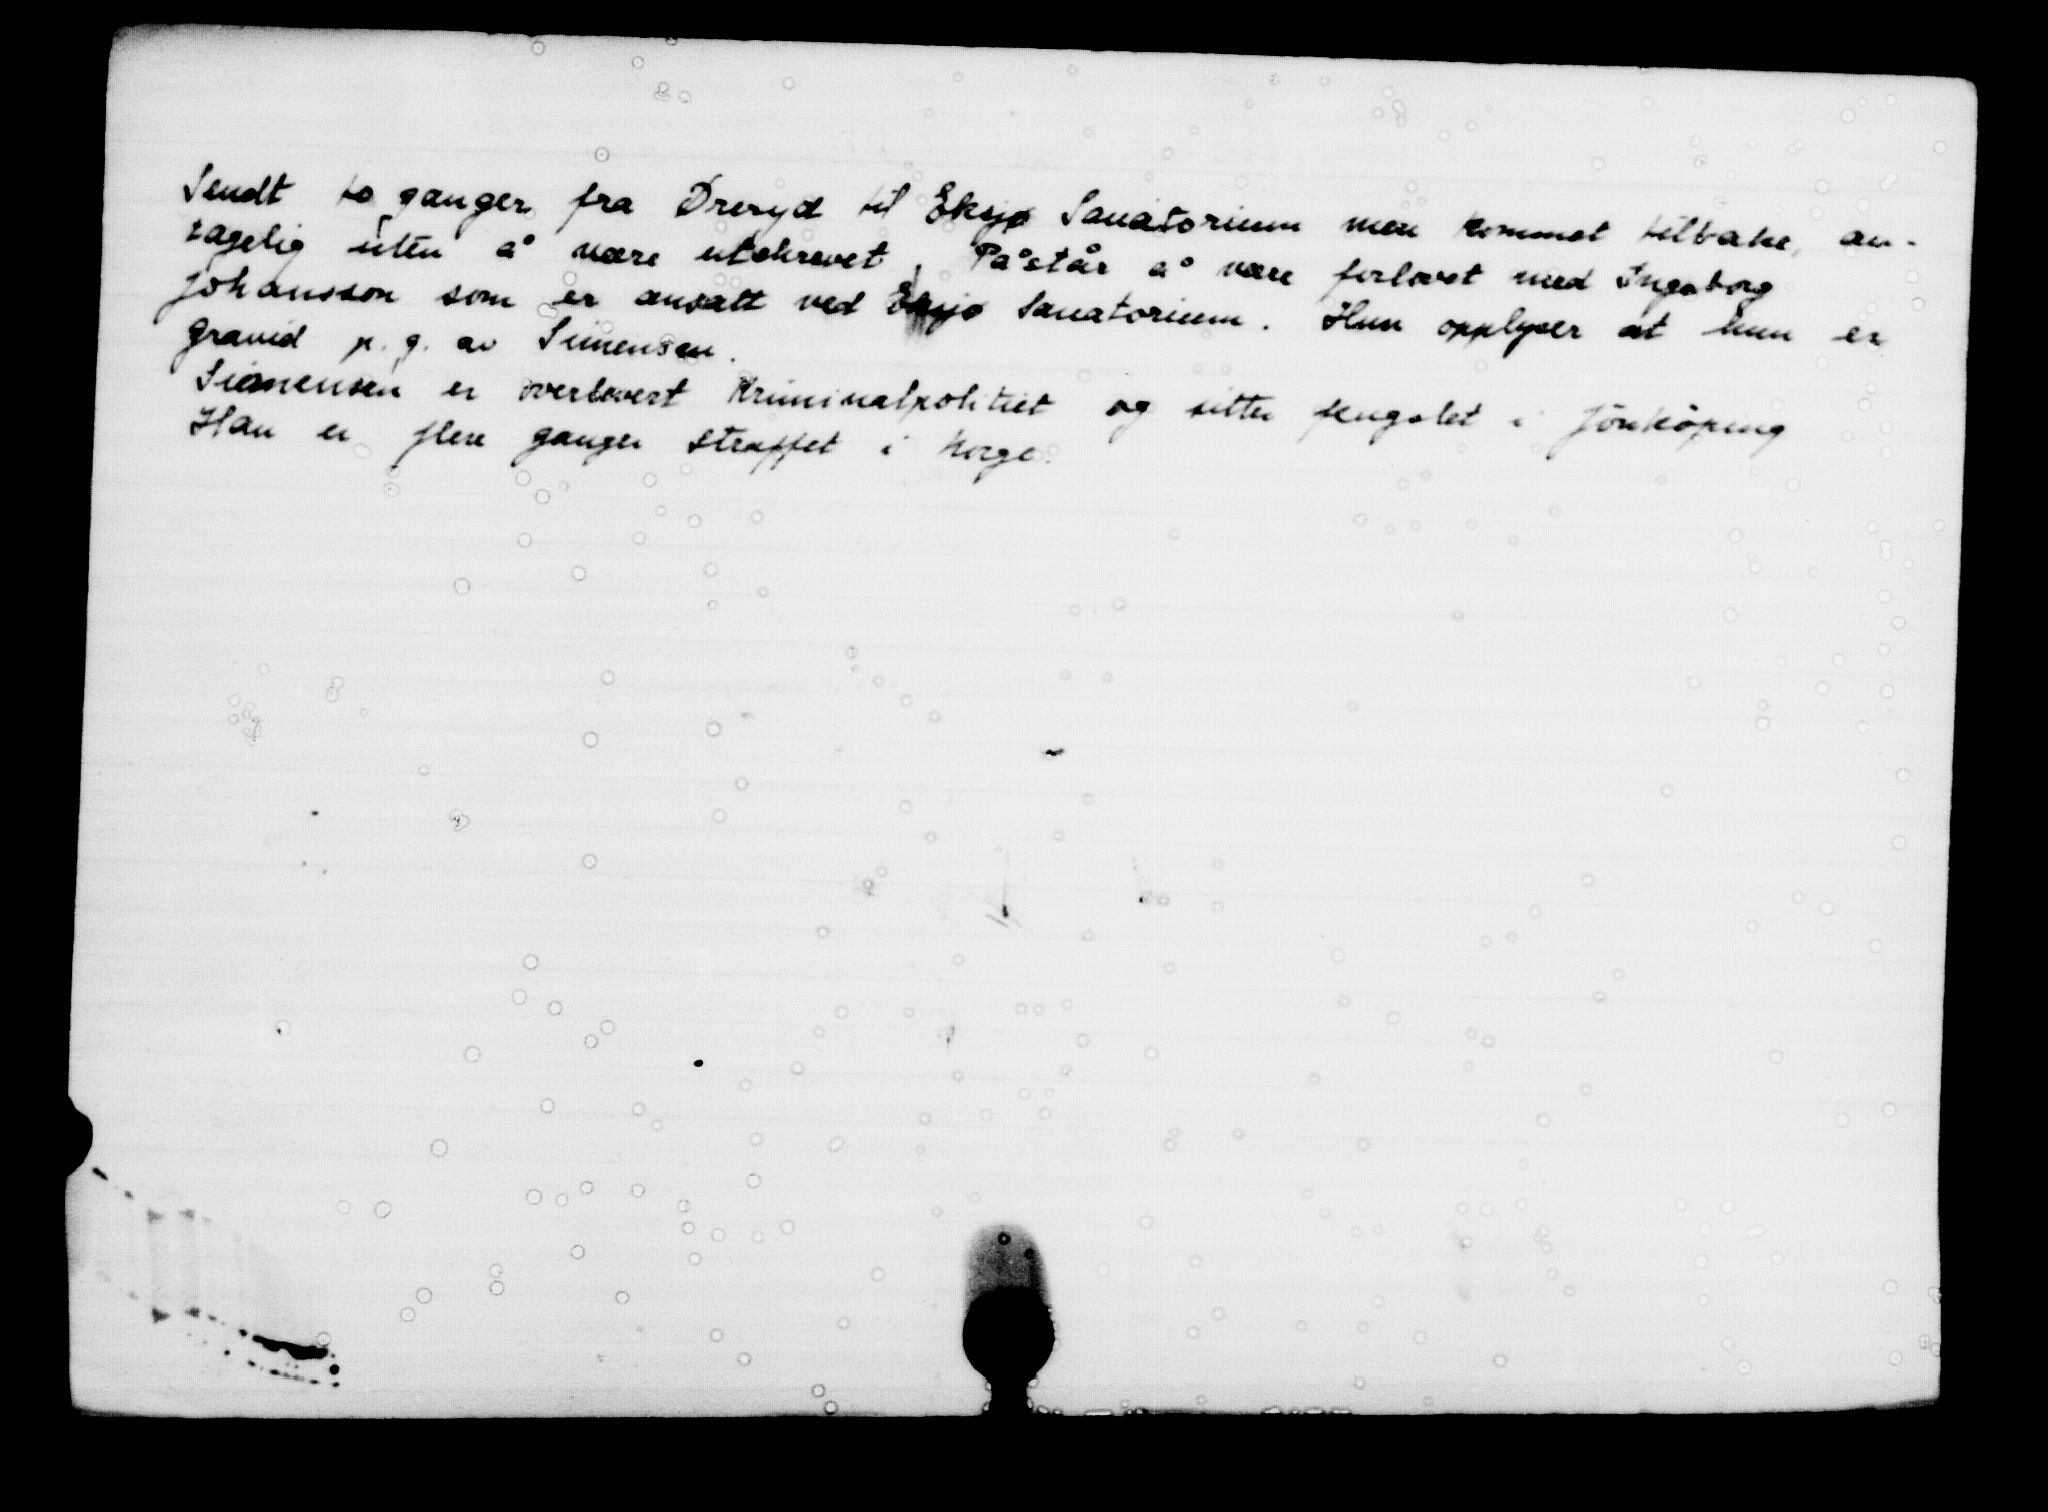 Sendt to ganger fra Öreryd til Eksjø Sanatorium men kommet tilbake, an-
tagelig uten å være utskrevet. Påstår å være forlovet med Ingeborg
Johansson som er ansatt ved Eksjø Sanatorium. Hun opplyser at hun er
gravid p.g. av Simensen.
Simensen er overlevert Kriminalpolitiet og sitter fengslet i Jönköping
Han er flere ganger straffet i Norge.